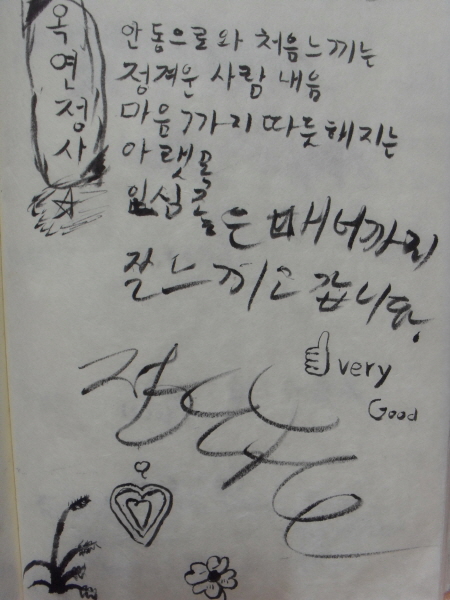 옥연정사
안동으로와 처음느끼는
정겨운 사람 내음
마음까지 따듯해지는
아랫몫
입심 좋은 매너까지
잘느끼고 갑니다.
very
Good